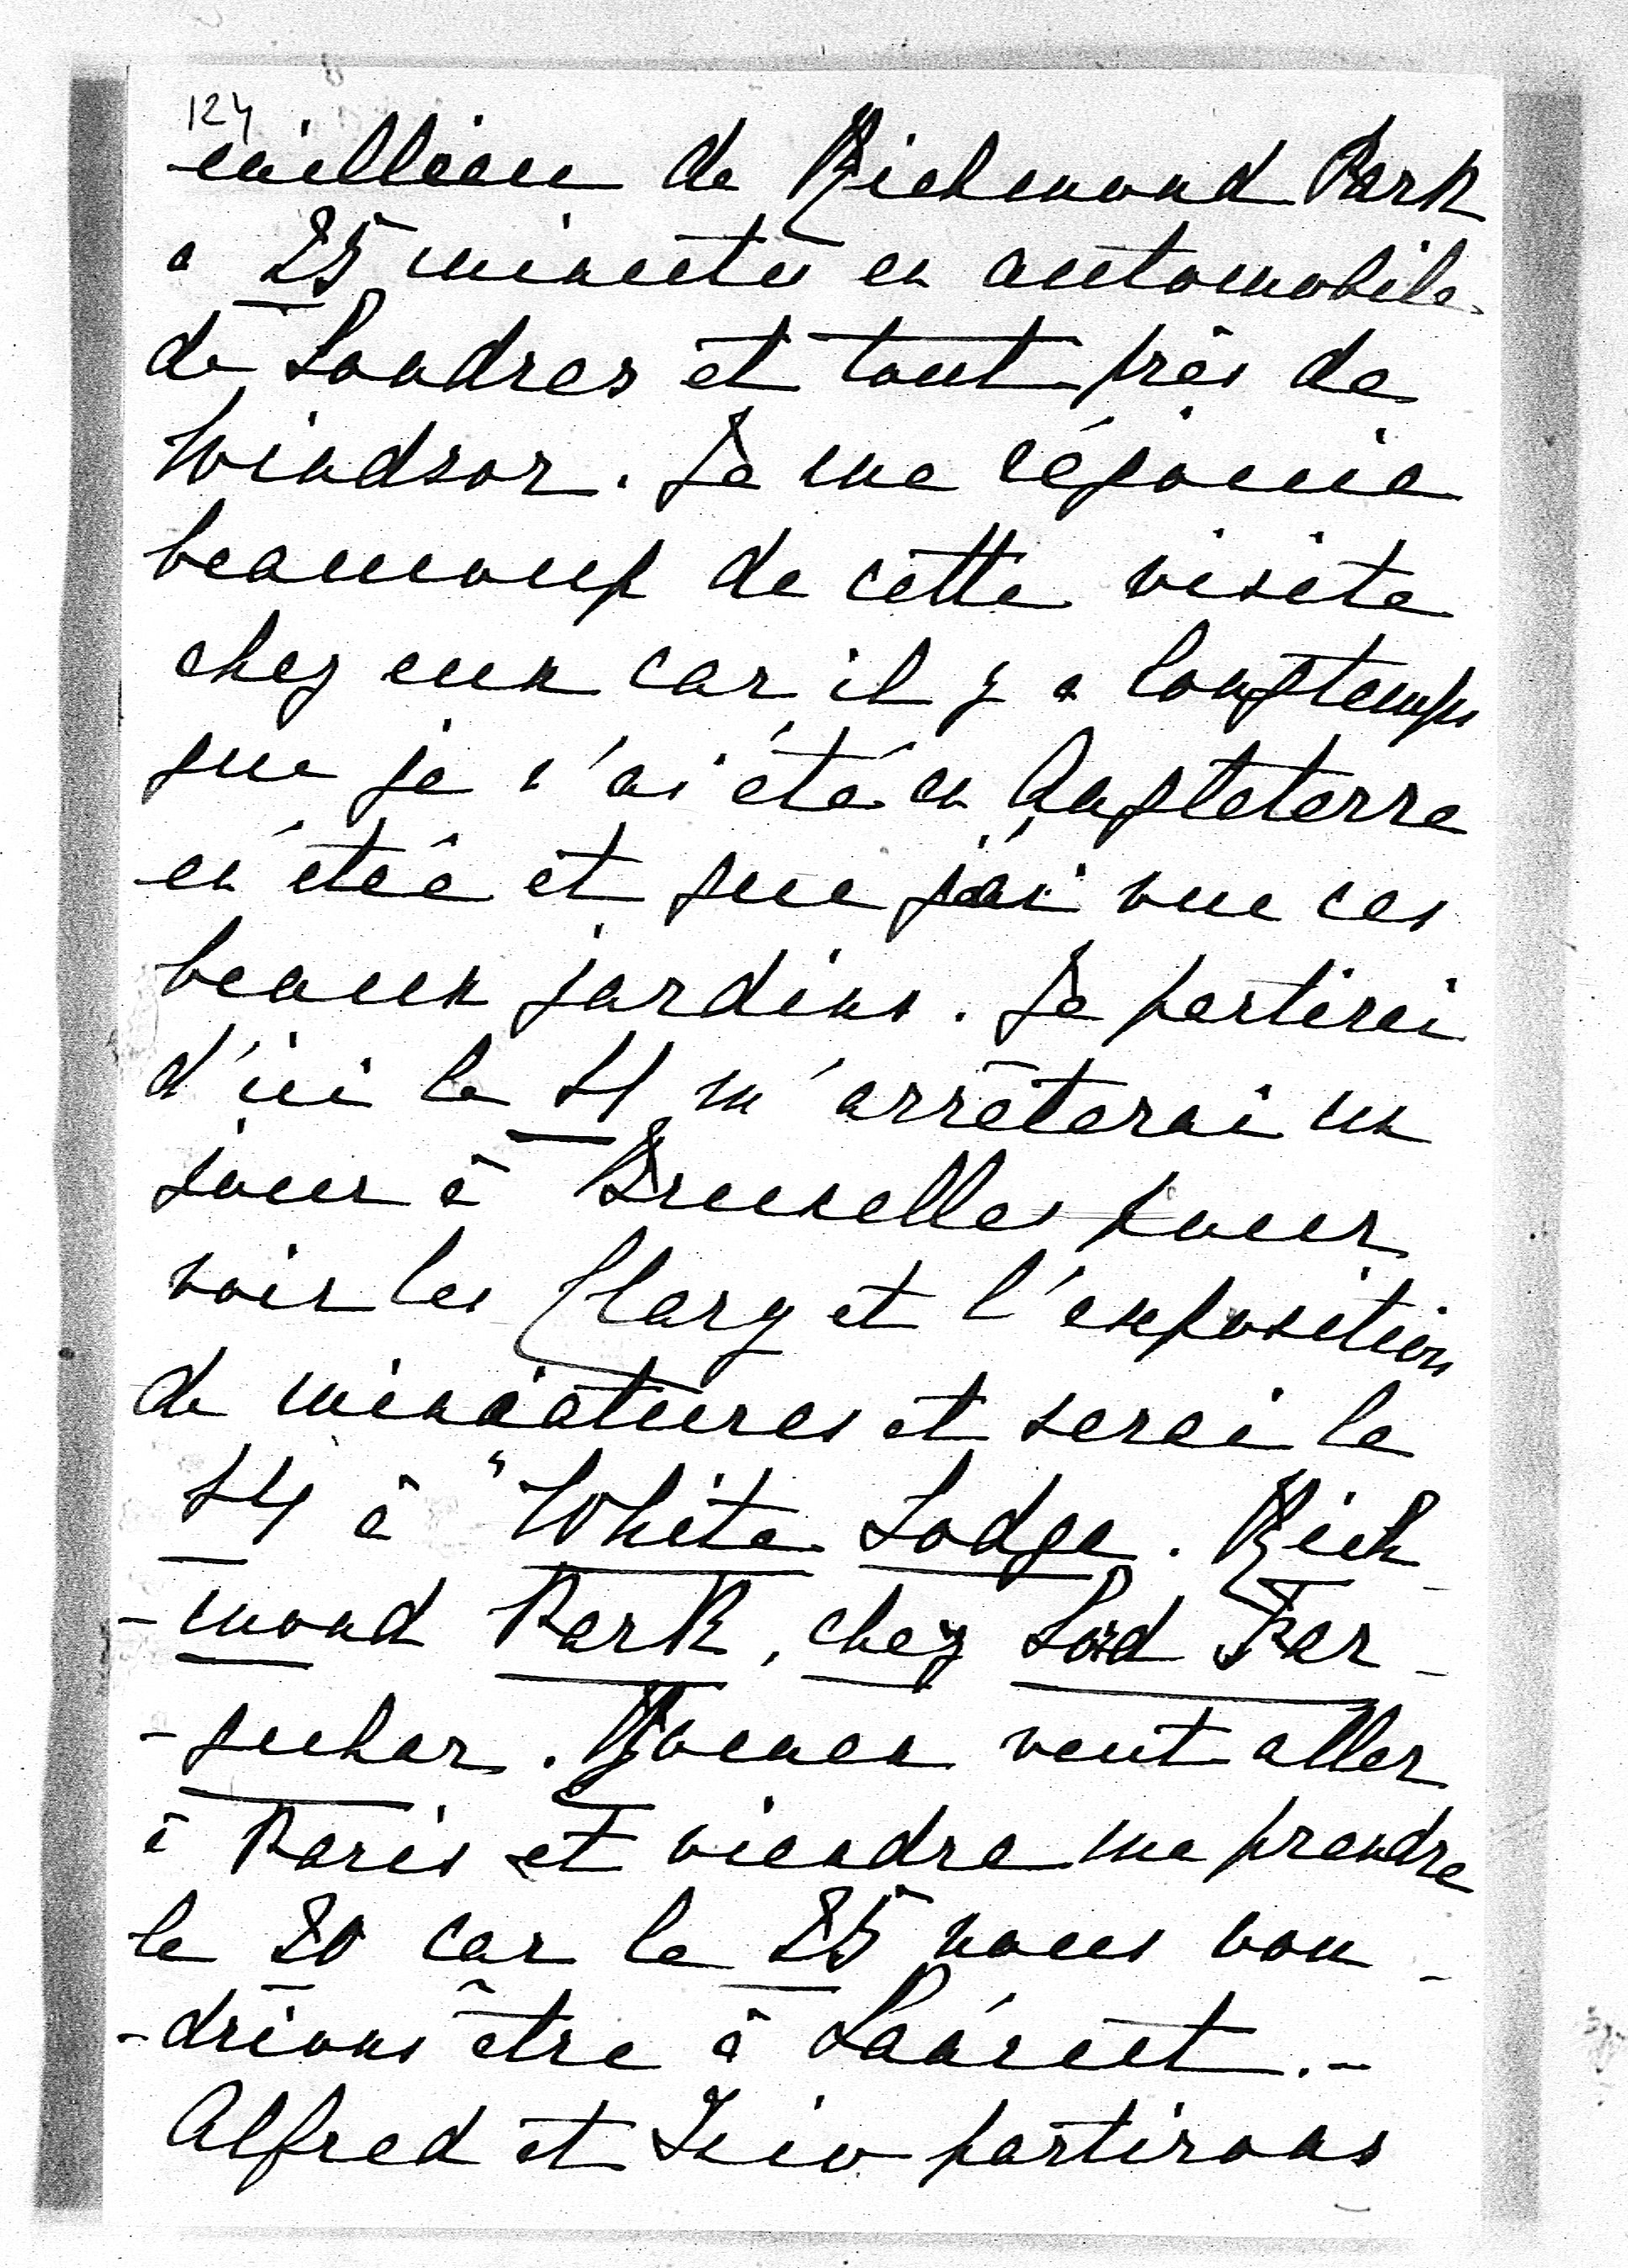 124
milieu de Richmond Park
a 25 minutes en automobile
de Londres et tout près de
Windsor. Je me réjouie
beaucoup de cette visite
chez eux car il y a longtemps
que je n'ai été en Angleterre
en été et que j'ai vue ces
beaux jardins. Je partirai
d'ici le 11 m'arrêterai un
jour à Bruxelles pour
voir les Clary et l'exposition
de miniatures et serai le
14 à "White Lodge. Rich-
-mond Park, chez Lord Far-
-quhar. Younen veut aller
à Paris et viendra me prendre
le 20 car le 25 nous vou-
-drions être à Laárest.-
Alfred et partirons